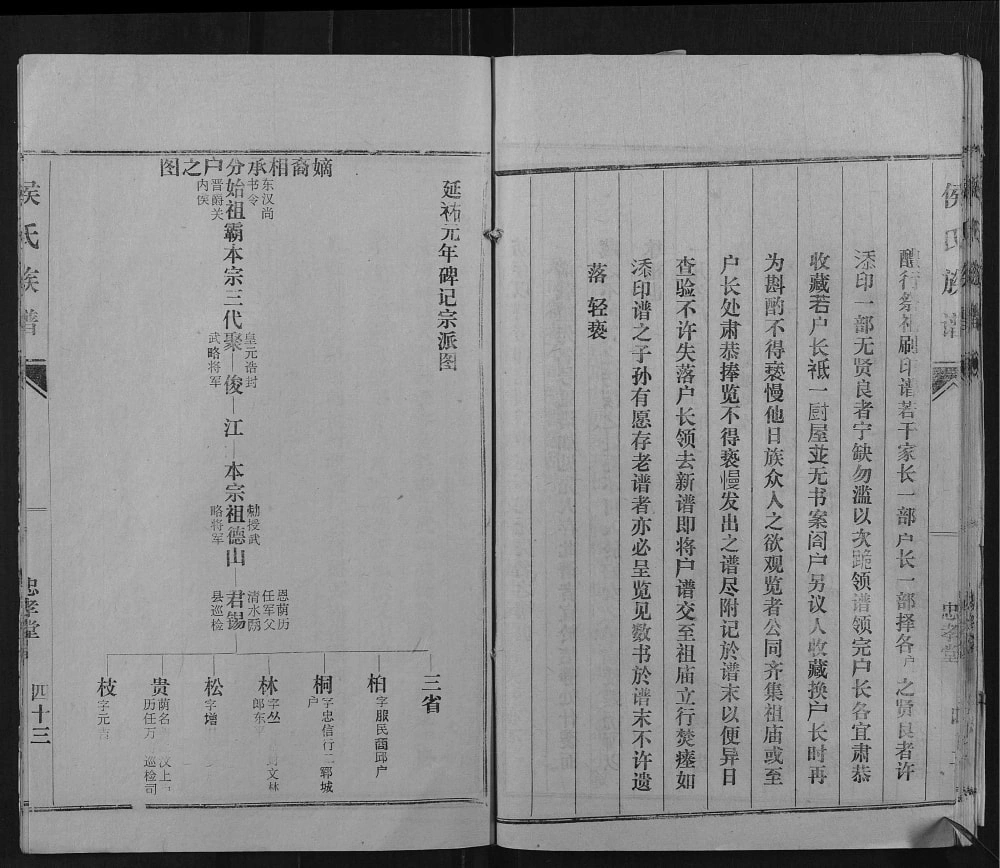 侯氏族谱
忠孝堂
醮行祭祖刷印谱若干家长一部户长一部择各户之贤良者许
添印一部无贤良者宁缺勿滥以次跪领谱领完户长各宜肃恭
收藏若户长祗一厨屋並无书案阎户另议人收藏换户长时再
为斟酌不得亵慢他日族众人之欲观览者公同齐集祖庙或至
户长处肃恭捧览不得亵慢发出之谱尽附记於谱末以便异日
查验不许失落户长领去新谱即将户谱交至祖庙立行焚瘗如
添印谱之子孙有愿存老谱者亦必呈览见数书於谱末不许遗
落 轻亵
延祐元年碑记宗派图
嫡裔相承分户之图
始祖霸 东汉尚书令晋爵关内侯
本宗三代聚 皇元诰封武略将军
俊
江
本宗祖德山 勅授武略将军
君锡 恩荫历任军父清水县巡检
三省
柏 字服民商邱户
桐 字忠信行二郓城户
林 字丛 文林郎东
松 字增
贵 荫名 汉上 历任万 巡检司
枝 字元吉
侯氏族谱
忠孝堂
四十三